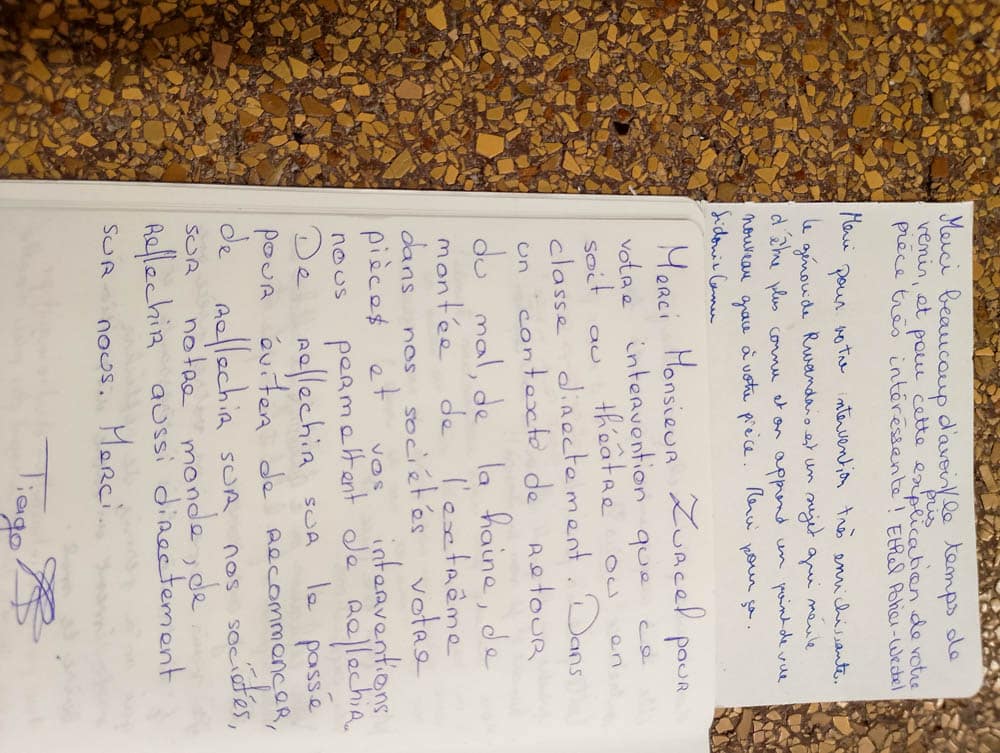 Merci beaucoup d'avoir pris le temps de
venir, et pour cette explication de votre
pièce très intéréssente! Ethel
Merci pour votre intervention très enrichissante.
le génocide Rwandais et un sujet qui mérite
d'être plus connue et on apprend un point de vue
nouveau grace à votre pièce. Merci pour sa.
Merci Monsieur Zurcel pour
votre intervention que ce
soit au théâtre ou en
classe directement. Dans
un contexte de retour
du mal, de la haine, de
montée de l'extrême
dans nos sociétés votre
pièces et vos interventions
nous permettent de reflechir.
De reflechir sur le passé
pour éviter de recommencer,
de reflechir sur nos sociétés,
sur notre monde, de
Reflechir aussi directement
sur nous. Merci
Tiago